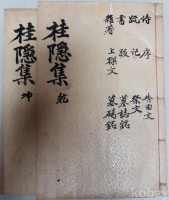 詩 序 告由文
記 祭文
書 跋 墓誌銘
雜著 上樑文 墓碣銘
桂隱集 乾
桂隱集 坤
kobay